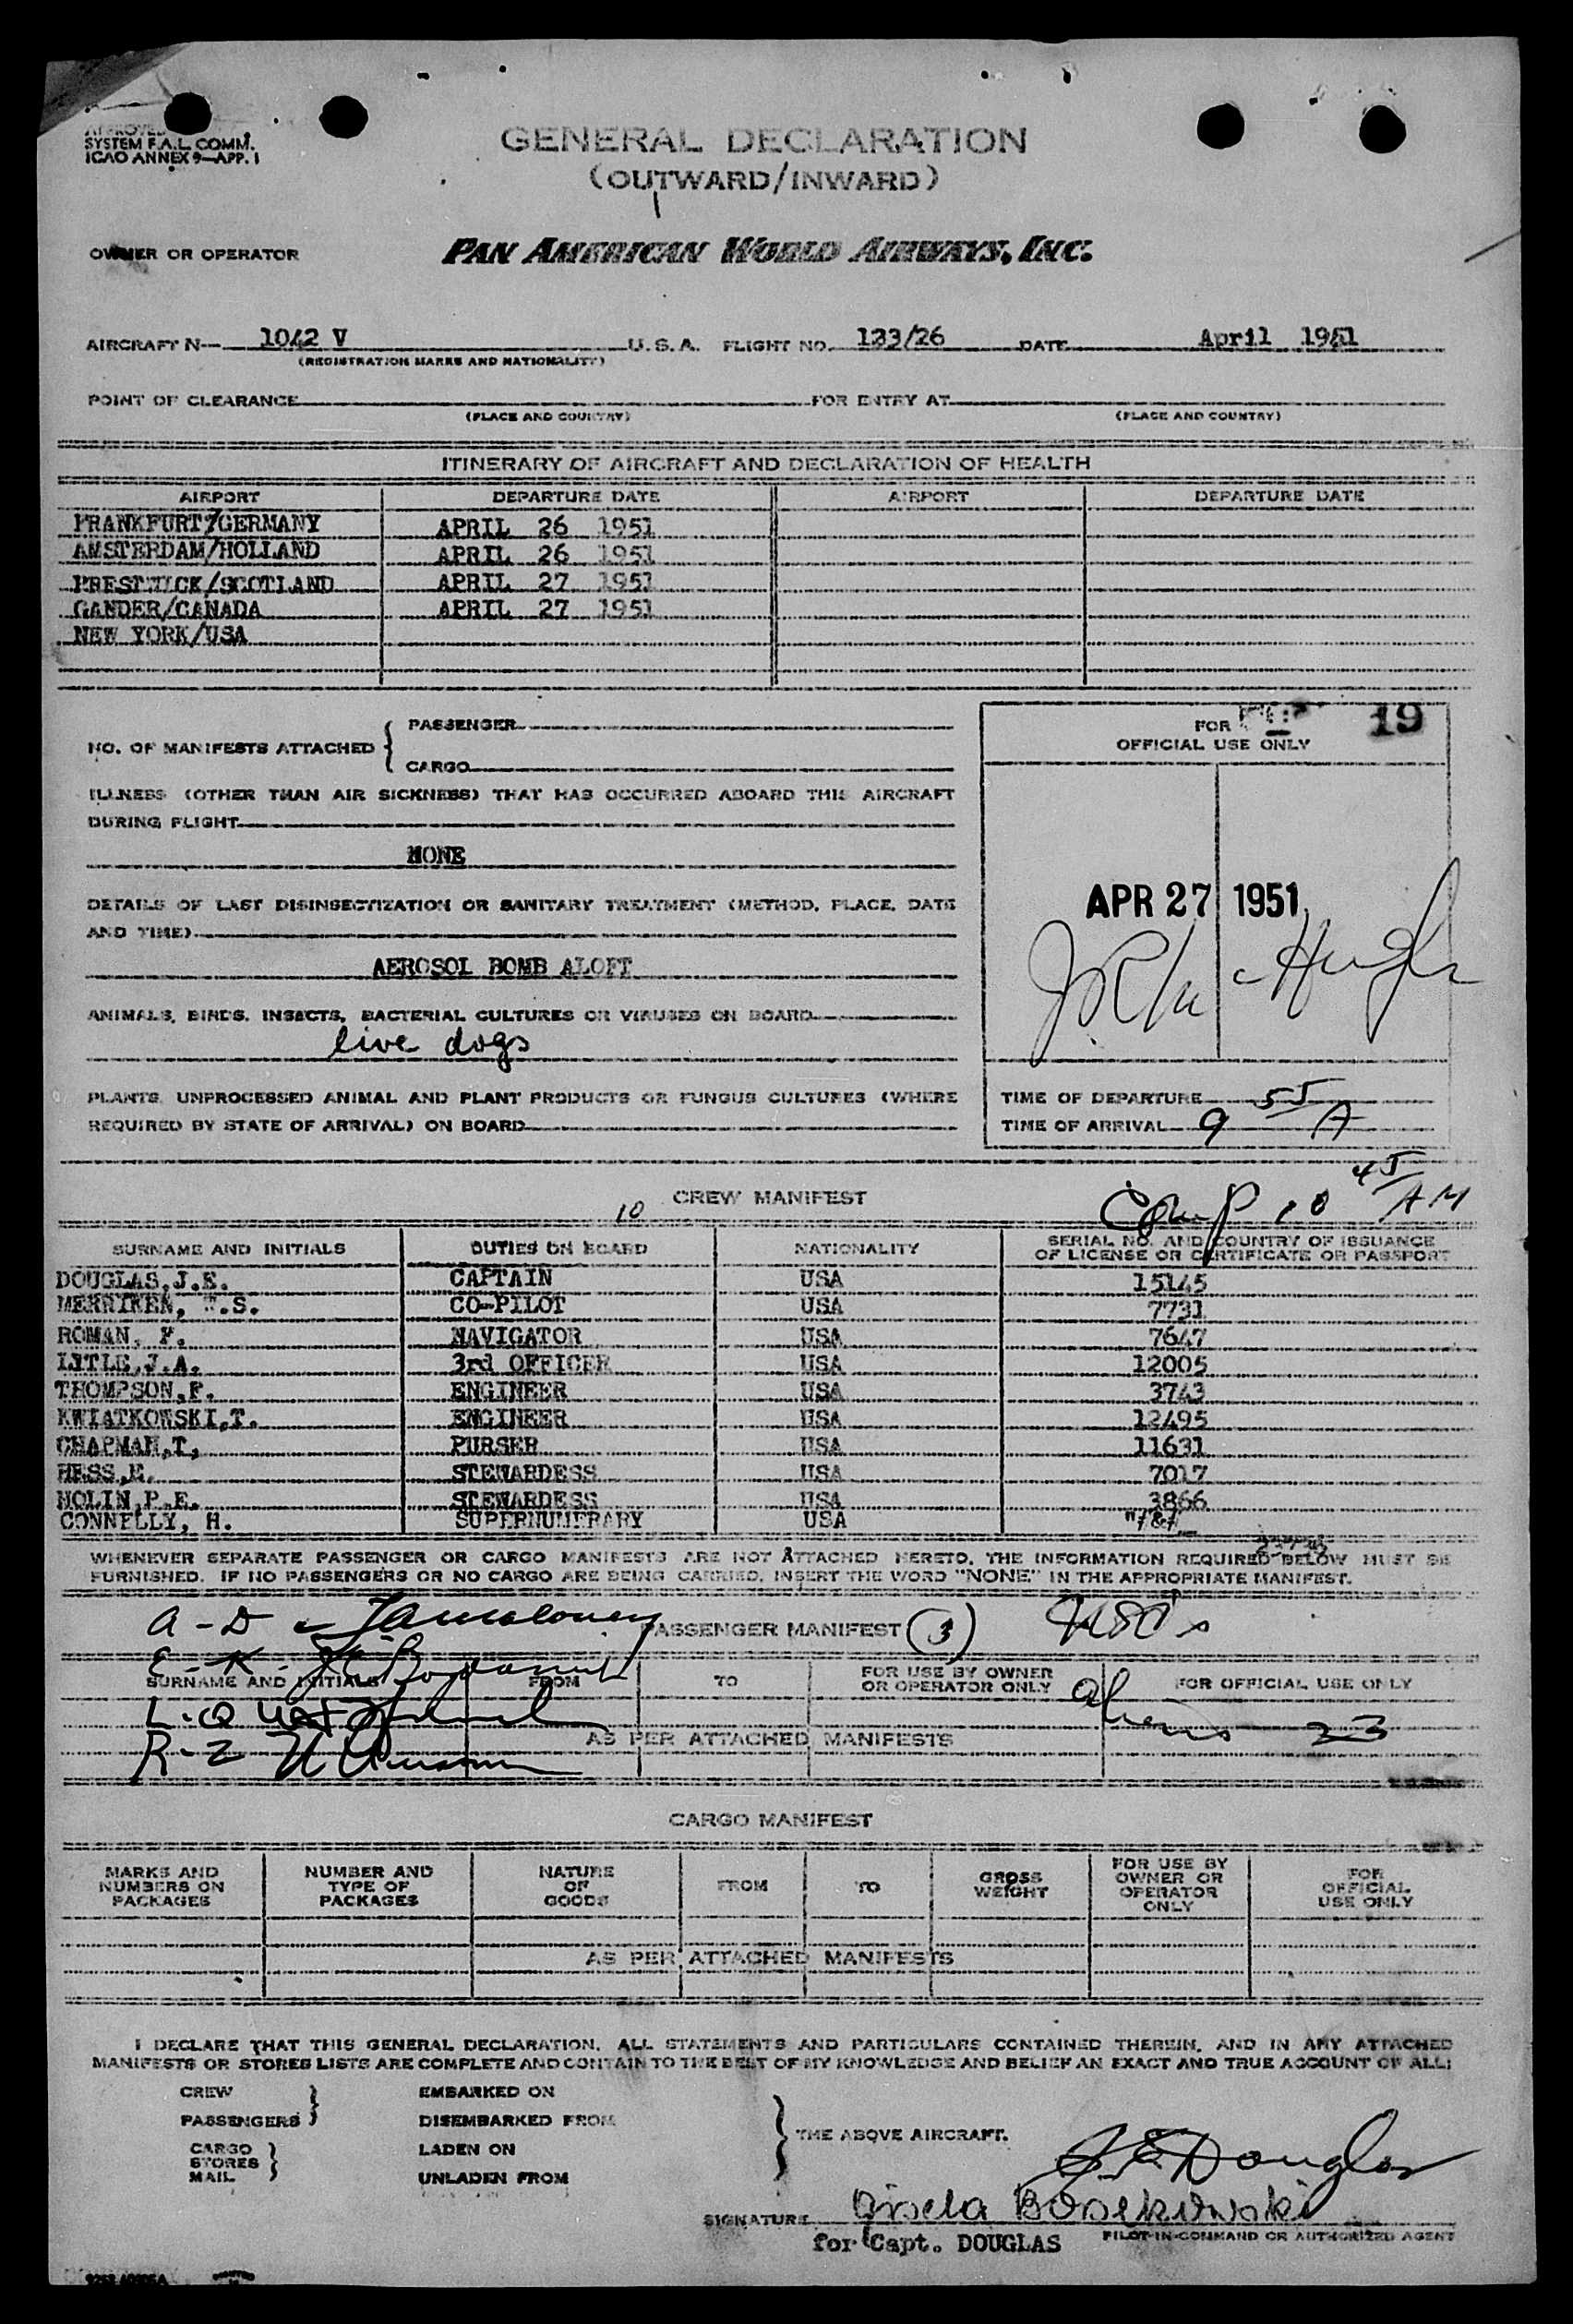 APPROVED
SYSTEM F.A.L. COMM.
ICAO ANNEX 9—APP. 1
GENERAL DECLARATION
(OUTWARD/INWARD)
OWNER OR OPERATOR PAN AMERICAN WORLD AIRWAYS, INC.
AIRCRAFT N— 1042 V U.S.A. FLIGHT NO. 133/26 DATE April 1951
(REGISTRATION MARKS AND NATIONALITY)
POINT OF CLEARANCE FOR ENTRY AT
(PLACE AND COUNTRY) (PLACE AND COUNTRY)
ITINERARY OF AIRCRAFT AND DECLARATION OF HEALTH
AIRPORT DEPARTURE DATE AIRPORT DEPARTURE DATE
FRANKFURT/GERMANY APRIL 26 1951
AMSTERDAM/HOLLAND APRIL 26 1951
PRESTWICK/SCOTLAND APRIL 27 1951
GANDER/CANADA APRIL 27 1951
NEW YORK/USA
NO. OF MANIFESTS ATTACHED { PASSENGER
CARGO
FOR 19
OFFICIAL USE ONLY
ILLNESS (OTHER THAN AIR SICKNESS) THAT HAS OCCURRED ABOARD THIS AIRCRAFT
DURING FLIGHT
NONE
DETAILS OF LAST DISINSECTIZATION OR SANITARY TREATMENT (METHOD, PLACE, DATE
AND TIME)
APR 27 1951
AEROSOL BOMB ALOFT
ANIMALS, BIRDS, INSECTS, BACTERIAL CULTURES OR VIRUSES ON BOARD
live dogs
PLANTS, UNPROCESSED ANIMAL AND PLANT PRODUCTS OR FUNGUS CULTURES (WHERE
REQUIRED BY STATE OF ARRIVAL) ON BOARD
TIME OF DEPARTURE
TIME OF ARRIVAL 9 55 A
CREW MANIFEST
10 Comp 10 45 AM
SURNAME AND INITIALS DUTIES ON BOARD NATIONALITY SERIAL NO. AND COUNTRY OF ISSUANCE
OF LICENSE OR CERTIFICATE OR PASSPORT
DOUGLAS,J.E. CAPTAIN USA 15145
MERRIKEN, .S. CO-PILOT USA 7731
ROMAN, F. NAVIGATOR USA 7647
LITLE,J.A. 3rd OFFICER USA 12005
THOMPSON,F. ENGINEER USA 3743
KWIATKOWSKI,T. ENGINEER USA 12495
CHAPMAN,T, PURSER USA 11631
HESS, STEWARDESS USA 7017
NOLIN,P.E. STEWARDESS USA 3866
CONNELLY, H. SUPERNUMERARY USA
WHENEVER SEPARATE PASSENGER OR CARGO MANIFESTS ARE NOT ATTACHED HERETO, THE INFORMATION REQUIRED BELOW MUST BE
FURNISHED. IF NO PASSENGERS OR NO CARGO ARE BEING CARRIED, INSERT THE WORD "NONE" IN THE APPROPRIATE MANIFEST.
A - D
PASSENGER MANIFEST (3)
E - K
SURNAME AND INITIALS FROM TO FOR USE BY OWNER
OR OPERATOR ONLY FOR OFFICIAL USE ONLY
L - Q
Aliens 33
AS PER ATTACHED MANIFESTS
R - Z
CARGO MANIFEST
MARKS AND
NUMBERS ON
PACKAGES
NUMBER AND
TYPE OF
PACKAGES
NATURE
OF
GOODS
FROM
TO
GROSS
WEIGHT
FOR USE BY
OWNER OR
OPERATOR
ONLY
FOR
OFFICIAL
USE ONLY
AS PER ATTACHED MANIFESTS
I DECLARE THAT THIS GENERAL DECLARATION, ALL STATEMENTS AND PARTICULARS CONTAINED THEREIN, AND IN ANY ATTACHED
MANIFESTS OR STORES LISTS ARE COMPLETE AND CONTAIN TO THE BEST OF MY KNOWLEDGE AND BELIEF AN EXACT AND TRUE ACCOUNT OF ALL:
CREW } EMBARKED ON
PASSENGERS DISEMBARKED FROM
CARGO } LADEN ON
STORES
MAIL UNLADEN FROM
} THE ABOVE AIRCRAFT.
J E Douglas
SIGNATURE Gisela Bosekowski
for Capt. DOUGLAS PILOT-IN-COMMAND OR AUTHORIZED AGENT